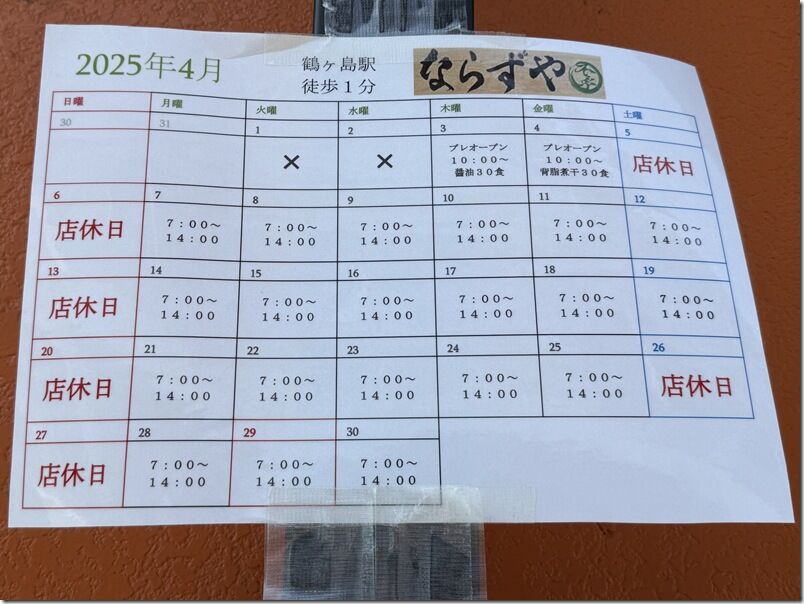 2025年4月
鶴ヶ島駅
徒歩1分
ならずや
日曜 月曜 火曜 水曜 木曜 金曜 土曜
30 31 1 2 3 4 5
× × プレオープン プレオープン 店休日
10:00～ 10:00～
醤油30食 背脂煮干30食
6 7 8 9 10 11 12
店休日 7:00～ 7:00～ 7:00～ 7:00～ 7:00～ 7:00～
14:00 14:00 14:00 14:00 14:00 14:00
13 14 15 16 17 18 19
店休日 7:00～ 7:00～ 7:00～ 7:00～ 7:00～ 7:00～
14:00 14:00 14:00 14:00 14:00 14:00
20 21 22 23 24 25 26
店休日 7:00～ 7:00～ 7:00～ 7:00～ 7:00～ 店休日
14:00 14:00 14:00 14:00 14:00
27 28 29 30
店休日 7:00～ 7:00～ 7:00～
14:00 14:00 14:00